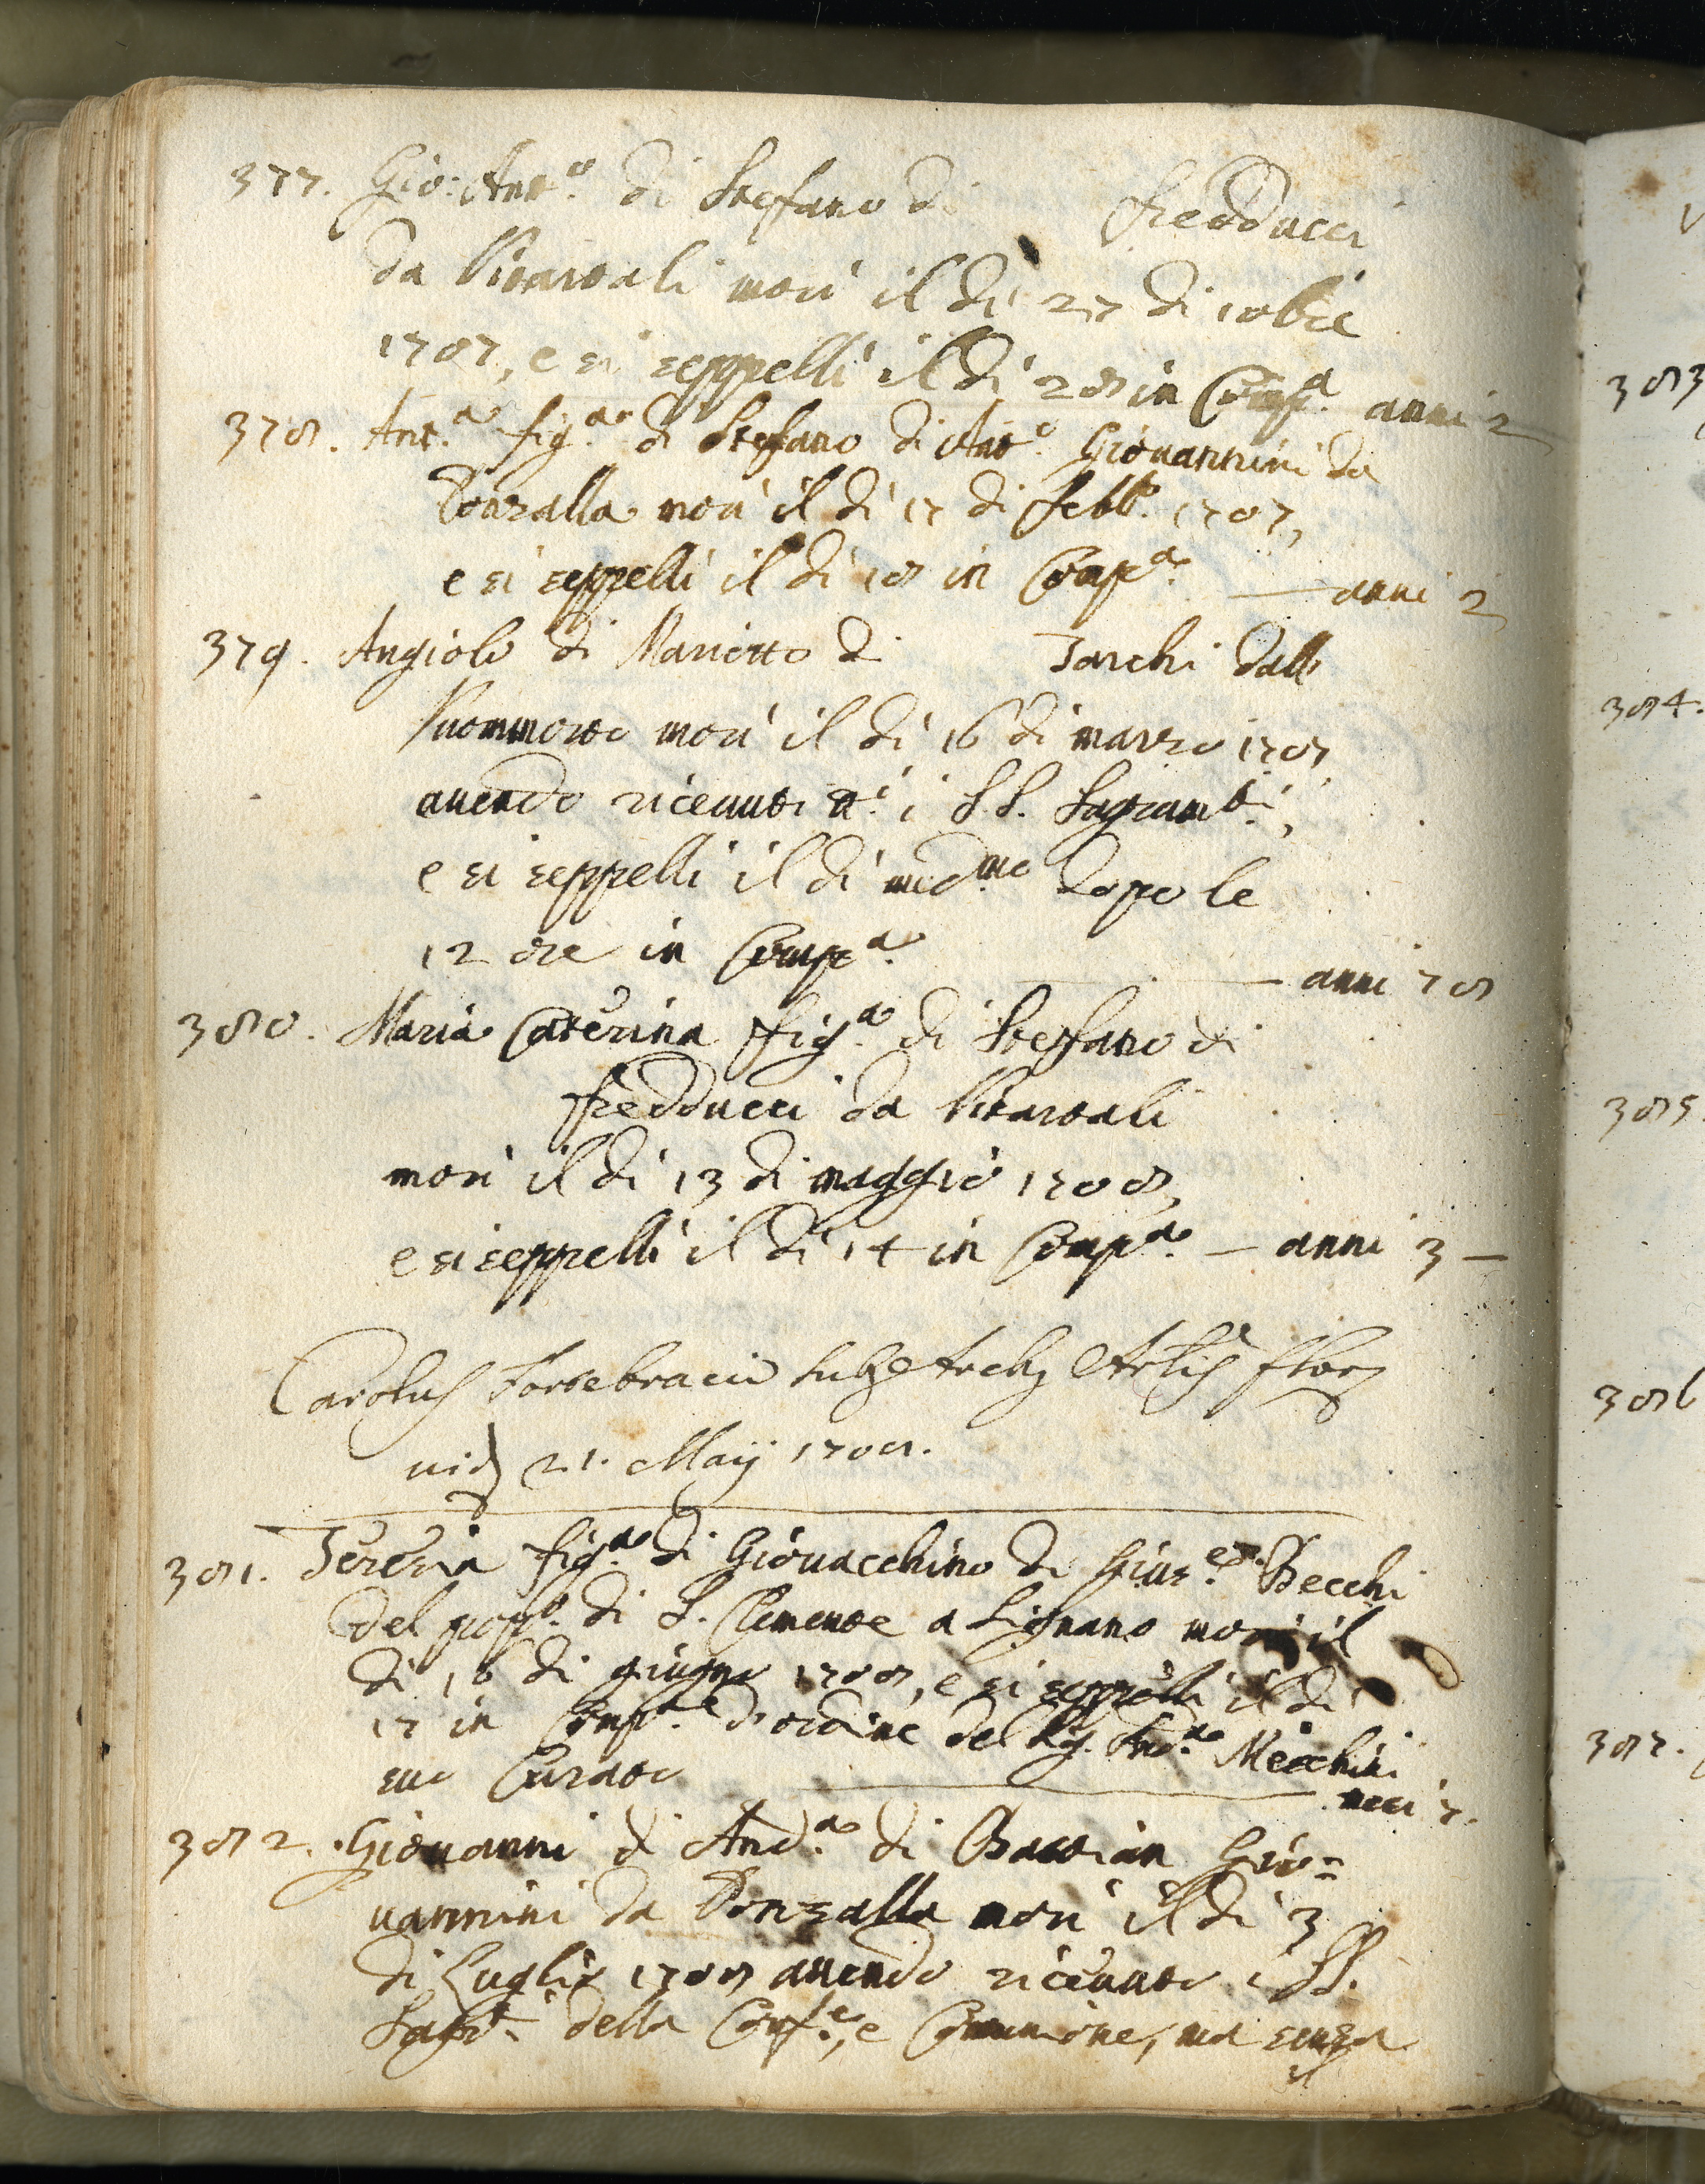 377. Gio: Ant.o di Stefano di Fredducci
da Vitartali morì il dì 27 di 10bre
1707, e si seppellì il dì 28 in Comp.a anni 2
378. Ant.a fig.a di Stefano di Ant.o Giovannini da
Ponzalla morì il dì 17 di febb.o 1707,
e si seppellì il dì 18 in Comp.a — anni 2
379. Angiolo di Mariotto di Tarchi dall
Vuommorto morì il dì 16 di marzo 1707
avendo ricevuti tt.i i S.S. Sagram.ti,
e si seppellì il dì med.mo dopo le
12 ore in Comp.a — anni 78
380. Maria Caterina fig.a di Steffano di
Fredducci da Vitartali
morì il dì 13 di maggio 1708,
e si seppellì il dì 14 in Comp.a — anni 3 —
Carolus Fortebracci
vid 21. Maij 1708.
381. Teresia fig.a di Giovacchino di Gius.e Becchi
del pop.o di S. Clemente a Signano morì il
dì 16 di giugno 1708, e si seppellì il dì
17 in Comp.a d'ordine del Sig. And.a Mecchini
suo Curato — mesi 7.
382. Giovanni di And.a di Bastian Gio=
vannini da Ponzalla morì il dì 3
di Luglio 1708 avendo ricevuto i SS.
Sagr.ti della Conf.e, e Comunione, ma senza
il
383
384.
385
386
387.